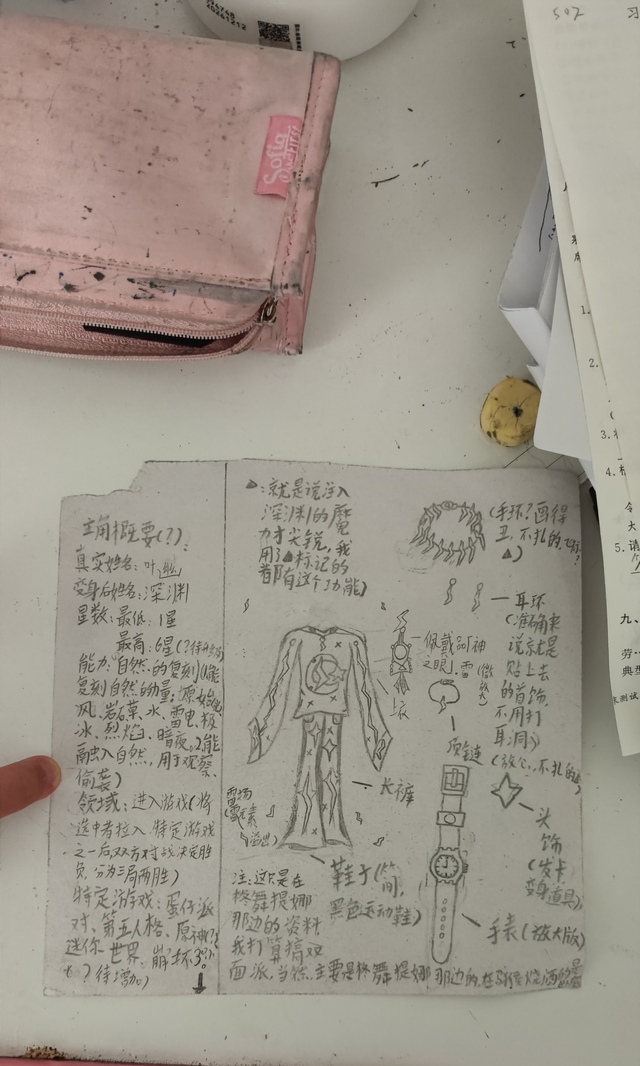 20241212
507
习
2.
3.
4.
5.
九、
劳
典型
主角概要(?):
真实姓名:叶
变身后姓名:深渊
星数:最低:1星
最高:6星(?待
能力:自然的复刻(能
复刻自然的能量:原始
风、岩、草、水、雷电、极
冰、烈焰、暗夜。)(能
融入自然,用于观察、
偷袭)
领域:进入游戏(将
选中者拉入特定游戏
之一后,双方对战决定胜
负,分为三局两胜)
特定游戏:蛋仔派
对、第五人格、原神
迷你世界、崩坏3
(?待增加)
△:就是说注入
深渊的魔
力才尖锐,我
用了△标记的
都有这个功能)
(手环?画得
丑,不扎的,
△)
耳环
(准确来
说就是
贴上去
的首饰,
不用打
耳洞)
(放心,不扎的
佩戴的神
之眼,雷
上衣
项链
长裤
头
饰
(发卡
变身道具)
鞋子(简,
黑色运动鞋)
手表(放大版)
注:这只是在
格舞提娜
那边的资料
我打算搞双
面派,当然主要是格舞提娜那边的,